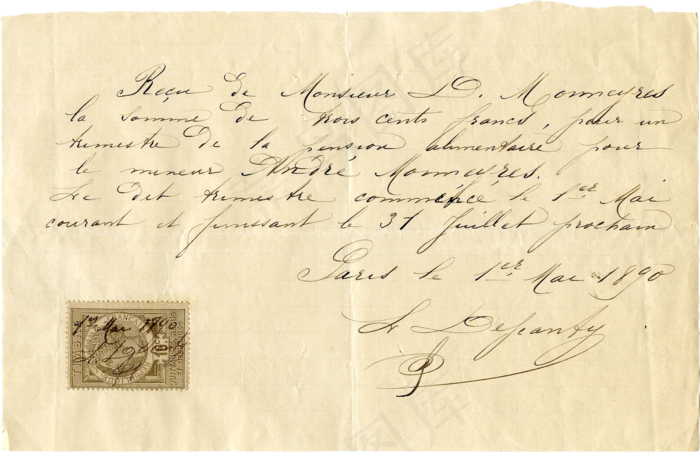 Reçu de Monsieur D. Monneyres
la somme de trois cents francs, pour un
trimestre de la pension alimentaire pour
le mineur André Monneyres.
Le dit trimestre commencé le 1er Mai
courant et finissant le 31 Juillet prochain
Paris le 1er Mai 1890
1er Mai 1890
10c